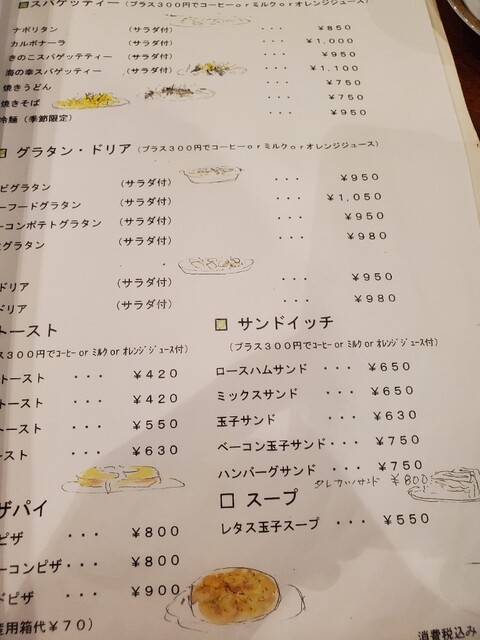 スパゲッティー（プラス３００円でコーヒーorミルクorオレンジジュース）
ナポリタン （サラダ付） ・・・ ￥８５０
カルボナーラ （サラダ付） ・・・ ￥１,０００
きのこスパゲッティー （サラダ付） ・・・ ￥９５０
海の幸スパゲッティー （サラダ付） ・・・ ￥１,１００
焼きうどん ・・・ ￥７５０
焼きそば ・・・ ￥７５０
冷麺（季節限定） ・・・ ￥９５０
グラタン・ドリア（プラス３００円でコーヒーorミルクorオレンジジュース）
ビグラタン （サラダ付） ・・・ ￥９５０
ーフードグラタン （サラダ付） ・・・ ￥１,０５０
ーコンポテトグラタン （サラダ付） ・・・ ￥９５０
グラタン （サラダ付） ・・・ ￥９８０
ドリア （サラダ付） ・・・ ￥９５０
ドリア （サラダ付） ・・・ ￥９８０
トースト
ス３００円でコーヒー or ミルク or オレンジジュース付）
トースト ・・・ ￥４２０
トースト ・・・ ￥４２０
トースト ・・・ ￥５５０
ースト ・・・ ￥６３０
サンドイッチ
（プラス３００円でコーヒー or ミルク or オレンジジュース付）
ロースハムサンド ・・・ ￥６５０
ミックスサンド ・・・ ￥６５０
玉子サンド ・・・ ￥６３０
ベーコン玉子サンド・・・ ￥７５０
ハンバーグサンド ・・・ ￥７５０
タレカツサンド ￥８００
ザパイ
ピザ ・・・ ￥８００
ーコンピザ・・・ ￥８００
ドピザ ・・・ ￥９００
用箱代￥７０）
スープ
レタス玉子スープ ・・・ ￥５５０
消費税込み